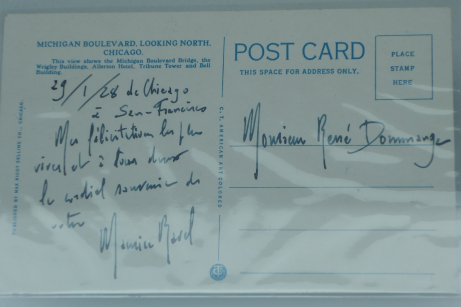 MICHIGAN BOULEVARD, LOOKING NORTH,
CHICAGO.
This view shows the Michigan Boulevard Bridge, the
Wrigley Buildings, Allerton Hotel, Tribune Tower and Bell
Building.
29/1/28 de Chicago
à San-Francisco
Mes félicitations les plus
vives et à tous deux
le cordial souvenir de
votre
Maurice Ravel
POST CARD
THIS SPACE FOR ADDRESS ONLY.
PLACE
STAMP
HERE
Monsieur René Dommange
C. T. AMERICAN ART COLORED